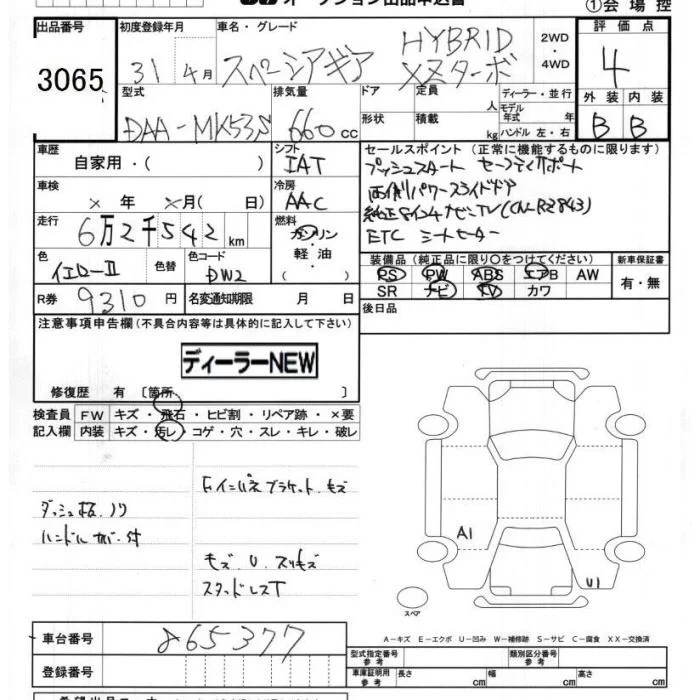 オークション出品申込書
①会場控
出品番号 初度登録年月 車名・グレード 2WD・4WD 評価点
3065 31年4月 スペーシアギア HYBRID XZターボ 4
型式 排気量 ドア 定員 人 ディーラー・並行 外装 内装
DAA-MK53S 660cc 形状 積載 kg モデル年式 年 ハンドル 左・右 B B
車歴 シフト セールスポイント(正常に機能するものに限ります)
自家用・( ) IAT プッシュスタート セーフティサポート
車検 冷房 両側パワースライドドア
× 年 × 月( 日) AAC 純正8インチナビTV(CN-RZ843)
走行 燃料 ETC シートヒーター
6万2千542km ガソリン・軽油・( )
色 色替 色コード 装備品(純正品に限り○をつけてください) 新車保証書
イエローⅡ DW2 PS PW ABS エアB AW 有・無
R券 9310円 名変通知期限 月 日 SR ナビ TV カワ
注意事項申告欄(不具合内容等は具体的に記入して下さい) 後日品
ディーラーNEW
修復歴 有 〔箇所 〕
検査員 FW キズ・飛石・ヒビ割・リペア跡・×要
記入欄 内装 キズ・汚レ・コゲ・穴・スレ・キレ・破レ
ダッシュ板ノリ
ハンドルカバー付
モズ U スリキズ
スタッドレスT
A1
U1
スペア
A-キズ E-エクボ U-凹み W-補修跡 S-サビ C-腐食 XX-交換済
車台番号 865377 型式指定番号 参考 類別区分番号 参考
登録番号 車庫証明用 参考 長さ cm 幅 cm 高さ cm